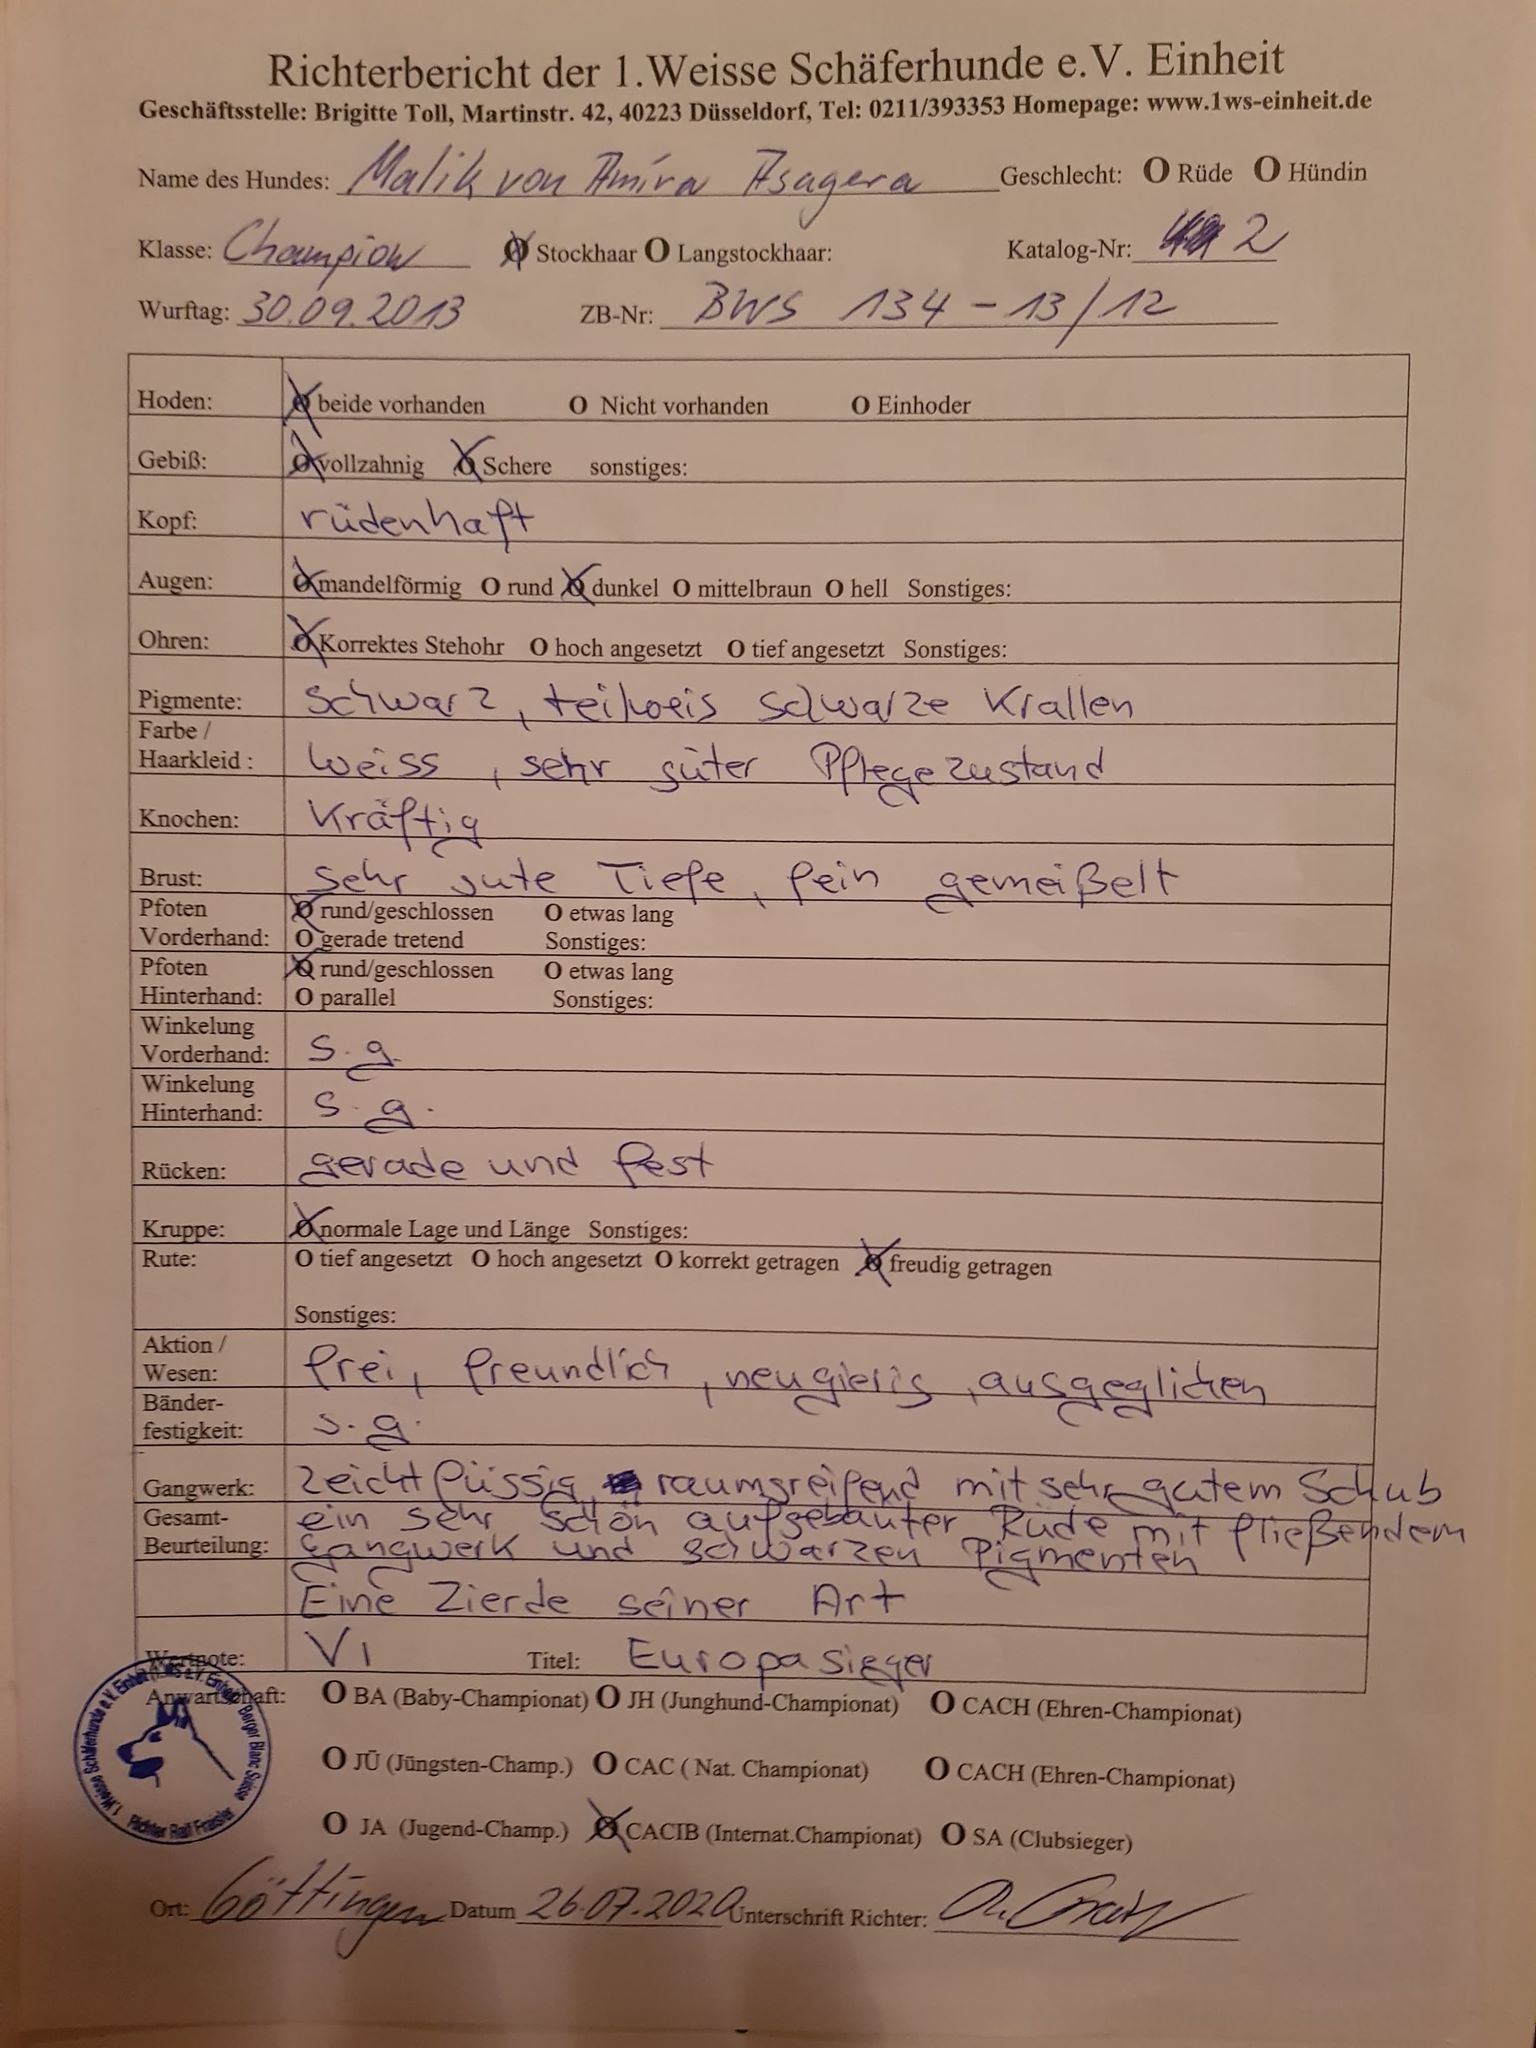 Richterbericht der 1.Weisse Schäferhunde e.V. Einheit
Geschäftsstelle: Brigitte Toll, Martinstr. 42, 40223 Düsseldorf, Tel: 0211/393353 Homepage: www.1ws-einheit.de
Name des Hundes: Malik von Amira Asagera Geschlecht: O Rüde O Hündin
Klasse: Champion O Stockhaar O Langstockhaar: Katalog-Nr: 2
Wurftag: 30.09.2013 ZB-Nr: BWS 134-13/12
Hoden: O beide vorhanden O Nicht vorhanden O Einhoder
Gebiß: O vollzahnig O Schere sonstiges:
Kopf: rüdenhaft
Augen: O mandelförmig O rund O dunkel O mittelbraun O hell Sonstiges:
Ohren: O Korrektes Stehohr O hoch angesetzt O tief angesetzt Sonstiges:
Pigmente: schwarz, teilweis schwarze Krallen
Farbe /
Haarkleid : weiss, sehr guter Pflegezustand
Knochen: Kräftig
Brust: sehr gute Tiefe, fein gemeißelt
Pfoten O rund/geschlossen O etwas lang
Vorderhand: O gerade tretend Sonstiges:
Pfoten O rund/geschlossen O etwas lang
Hinterhand: O parallel Sonstiges:
Winkelung
Vorderhand: s.g.
Winkelung
Hinterhand: s.g.
Rücken: gerade und fest
Kruppe: O normale Lage und Länge Sonstiges:
Rute: O tief angesetzt O hoch angesetzt O korrekt getragen O freudig getragen
Sonstiges:
Aktion /
Wesen: frei, freundlich, neugierig, ausgeglichen
Bänder-
festigkeit: s.g.
Gangwerk: Leichtfüssig raumgreifend mit sehr gutem Schub
Gesamt- ein sehr schön aufgebauter Rüde mit fließendem
Beurteilung: Gangwerk und schwarzen Pigmenten
Eine Zierde seiner Art
Wertnote: V1 Titel: Europasieger
Anwartschaft: O BA (Baby-Championat) O JH (Junghund-Championat) O CACH (Ehren-Championat)
O JÜ (Jüngsten-Champ.) O CAC ( Nat. Championat) O CACH (Ehren-Championat)
O JA (Jugend-Champ.) O CACIB (Internat.Championat) O SA (Clubsieger)
1. Weisse Schäferhunde e.V. Einheit
Berger Blanc Suisse
Richter Ralf
Ort: Göttingen Datum 26.07.2020 Unterschrift Richter: